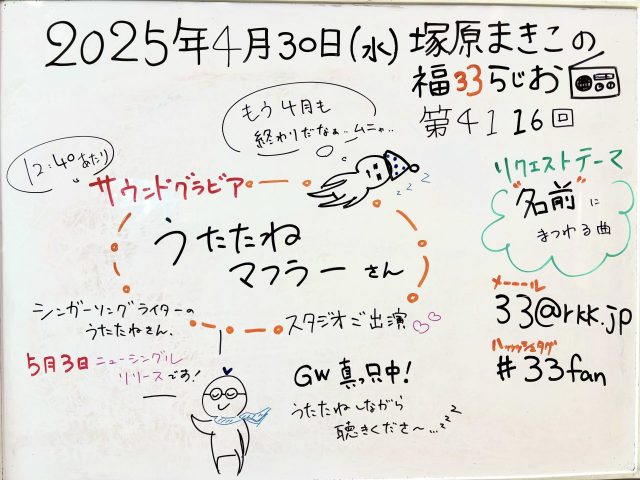 2025年4月30日(水) 塚原まきこの
福33らじお
第4116回
もう4月も
終わりだなぁ..ムニャ..
12:40あたり
サウンドグラビア
zzz
うたたね
マフラーさん
リクエストテーマ
"名前"に
まつわる曲
シンガーソングライターの
うたたねさん、
スタジオご出演♡♡
5月3日 ニューシングル
リリースです!
メーーール
33@rkk.jp
ハッシュタグ
#33fan
GW 真っ只中!
うたたねしながら
聴きくださ〜...zzz